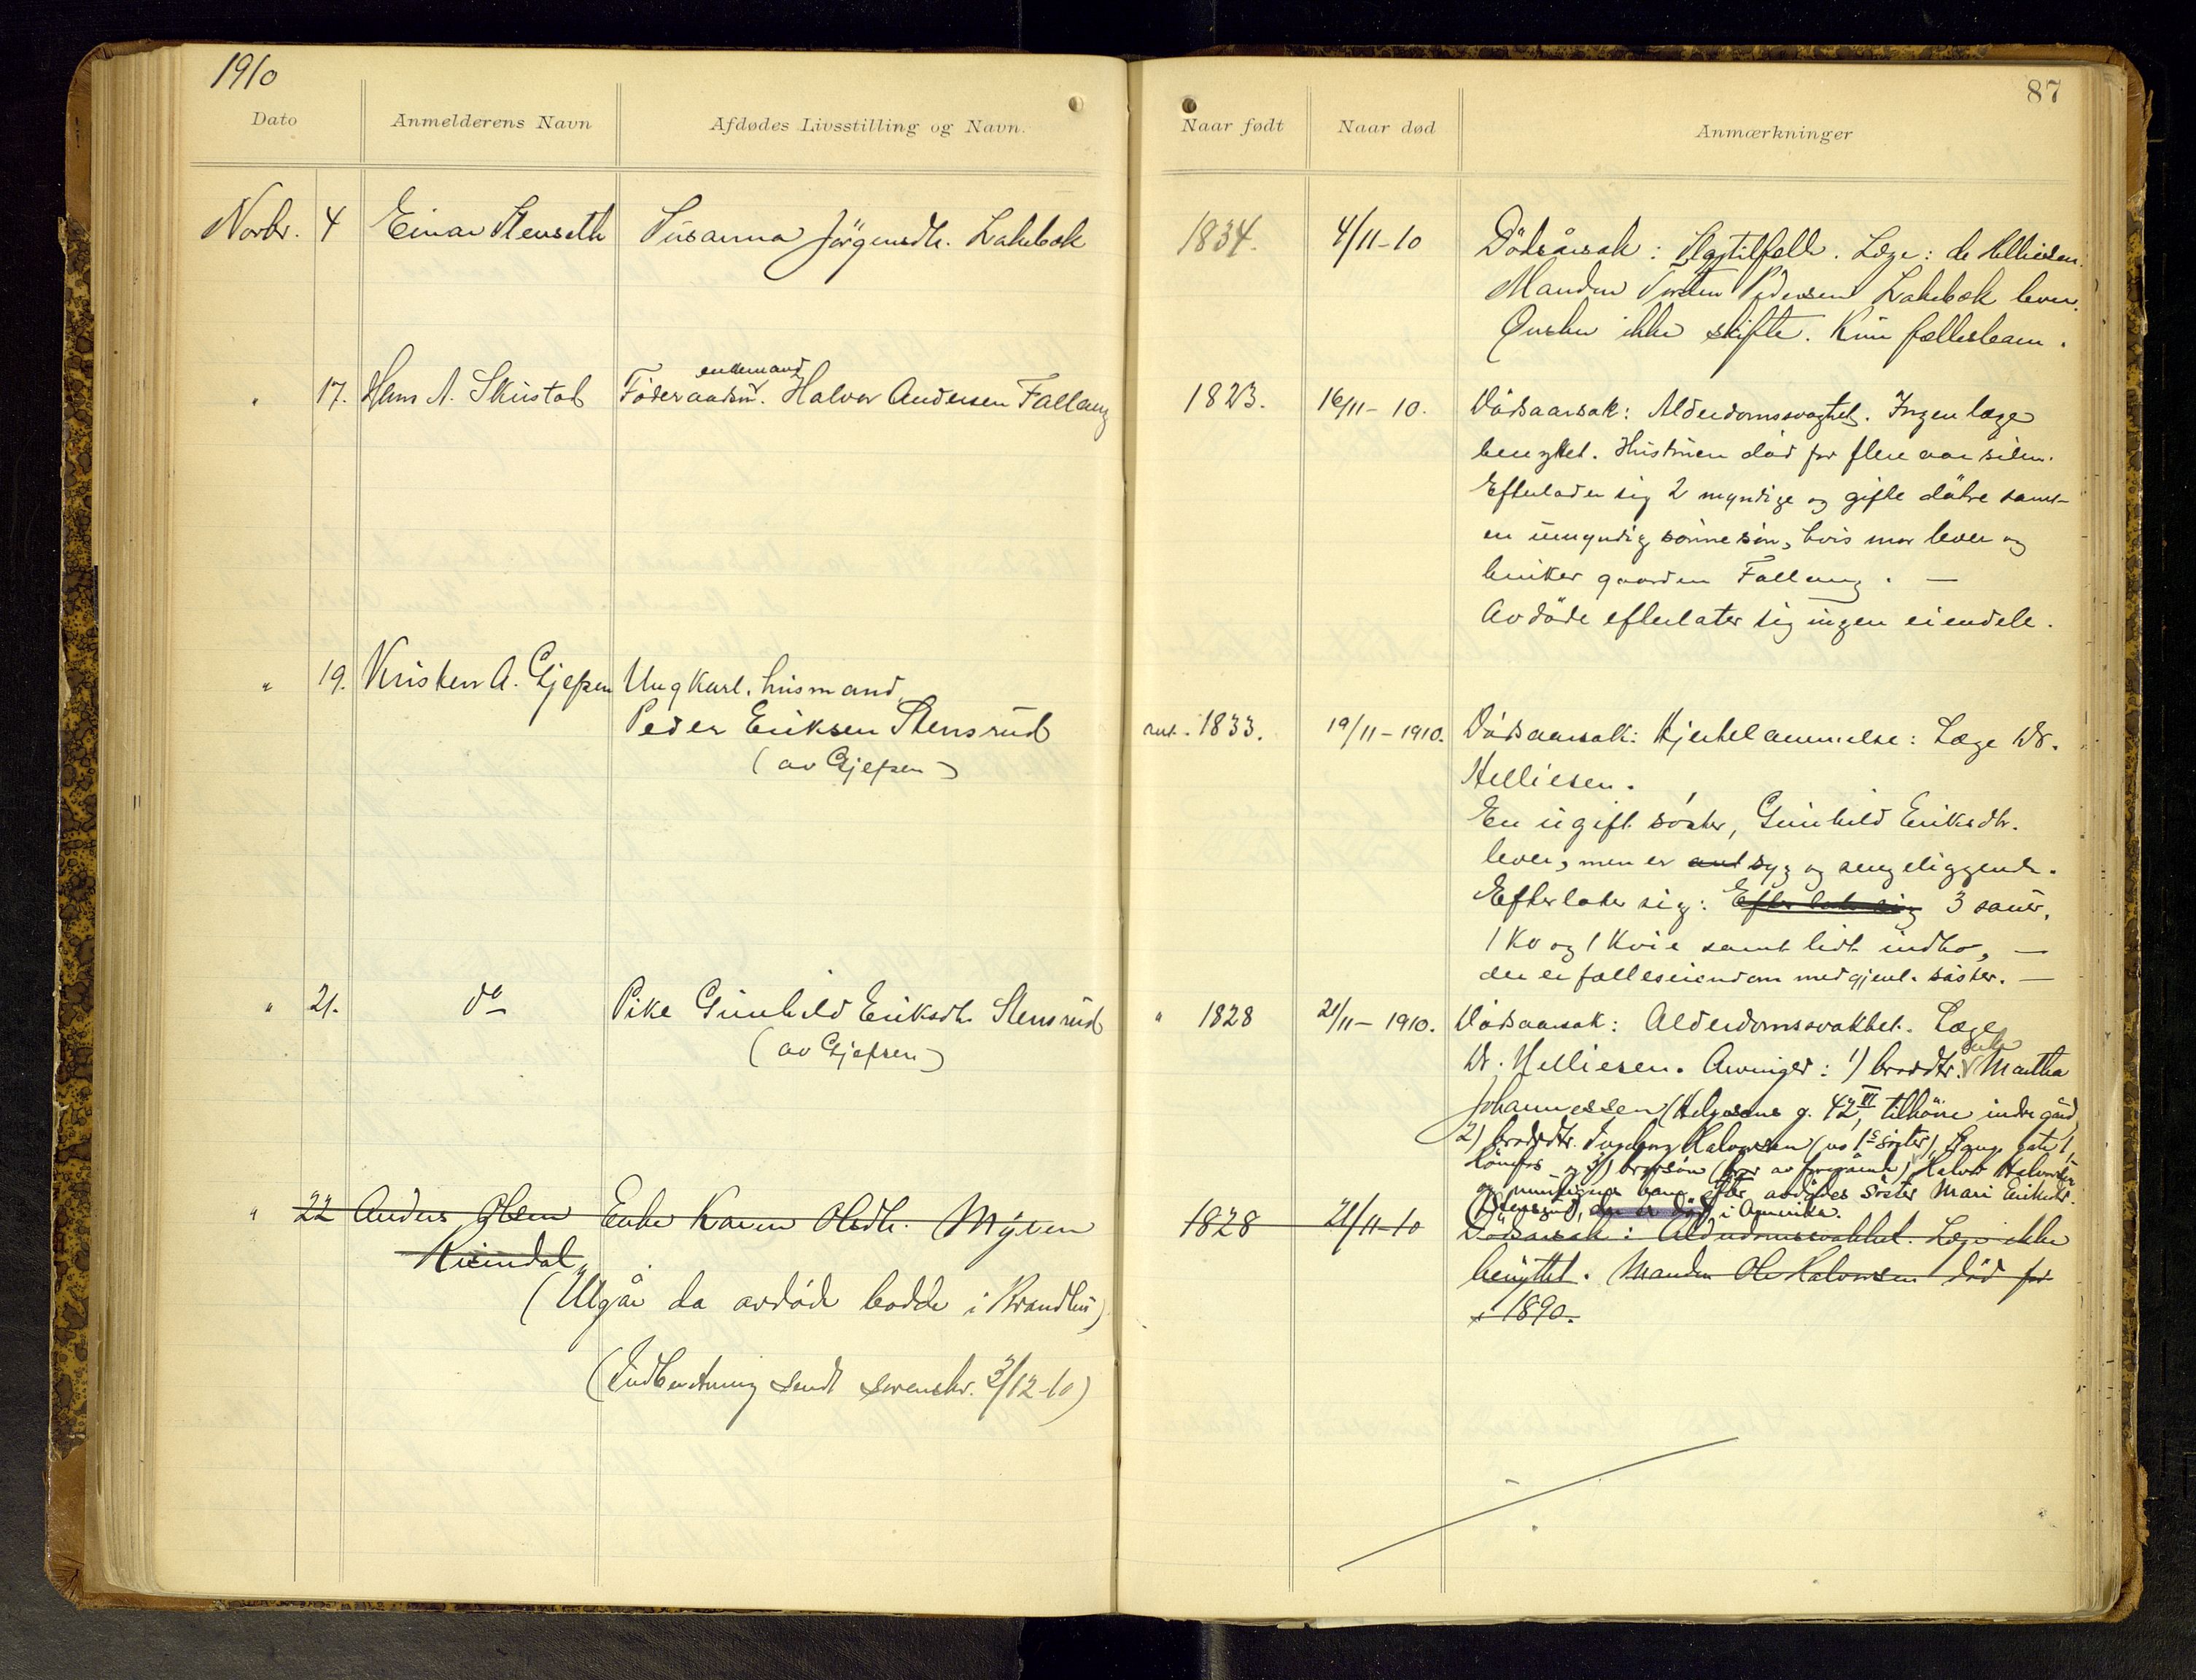 1910
87
Dato
Anmelderens Navn
Afdødes Livsstilling og Navn.
Naar født
Naar død
Anmærkninger
Novbr. 4 Einar Stenseth Susanna Jörgensdtr. Lakebæk 1834. 4/11-10 Dödsårsak: Slagtilfelle. Læge: de Helliesen.
Manden Torsten Pedersen Lakebæk lever.
Ønsker ikke skifte. Kun fællesbarn.
" 17. Hans A. Skustad Föderaadsm. enkemand Halvor Andersen Fallang 1823. 16/11-10. Dödsaarsak: Alderdomssvaghet. Ingen læge
benyttet. Hustruen död for flere aar siden.
Efterlader sig 2 myndige og gifte døtre samt
en umyndig sönnesön, hvis mor lever og
bruker gaarden Fallang. —
Avdöde efterlater sig ingen eiendele.
" 19. Kristen A. Gjefsen Ungkarl. husmand,
Peder Eriksen Stensrud
(av Gjefsen)
1833. 19/11-1910. Dödsaarsak: Hjertelammelse: Læge Dr.
Helliesen.
En ugift söster, Gunhild Eriksdtr.
lever, men er syg og sengeliggende.
Efterlater sig: Efterlater sig 3 sauer,
1 Ko og 1 Kvie samt lidt indbo, —
der er fælleseiendom med gjenl. söster. —
" 21. do Pike Gunhild Eriksdtr Stensrud
(av Gjefsen)
" 1828 21/11-1910. Dödsaarsak: Alderdomssvakhet. Læge
Dr. Helliesen. Arvinger: 1) brordtr. enke Martha
Johannessen (Helgesens g. 42 VI, tilhöire indre gård,
2) brordtr. Ingeborg Halvorsen (1s søster), gate 1,
Hönefos og 3) brorsön (bror av foregående) Halvor Halvorsen
og muligens barn efter avdødes søster Mari Eriksdtr.
Stensrud, der er död i Amerika.
" 22 Anders Olsen Enke Karen Olsdtr. Myren 1828 21/11-10 Dödsarsak: Alderdomssvakhet. Læge ikke
benyttet. Manden Ole Halvorsen död før
1890.
(Utgår da avdöde bodde i Brandbu)
(Indberetning sendt sorenskr. 3/12-10)